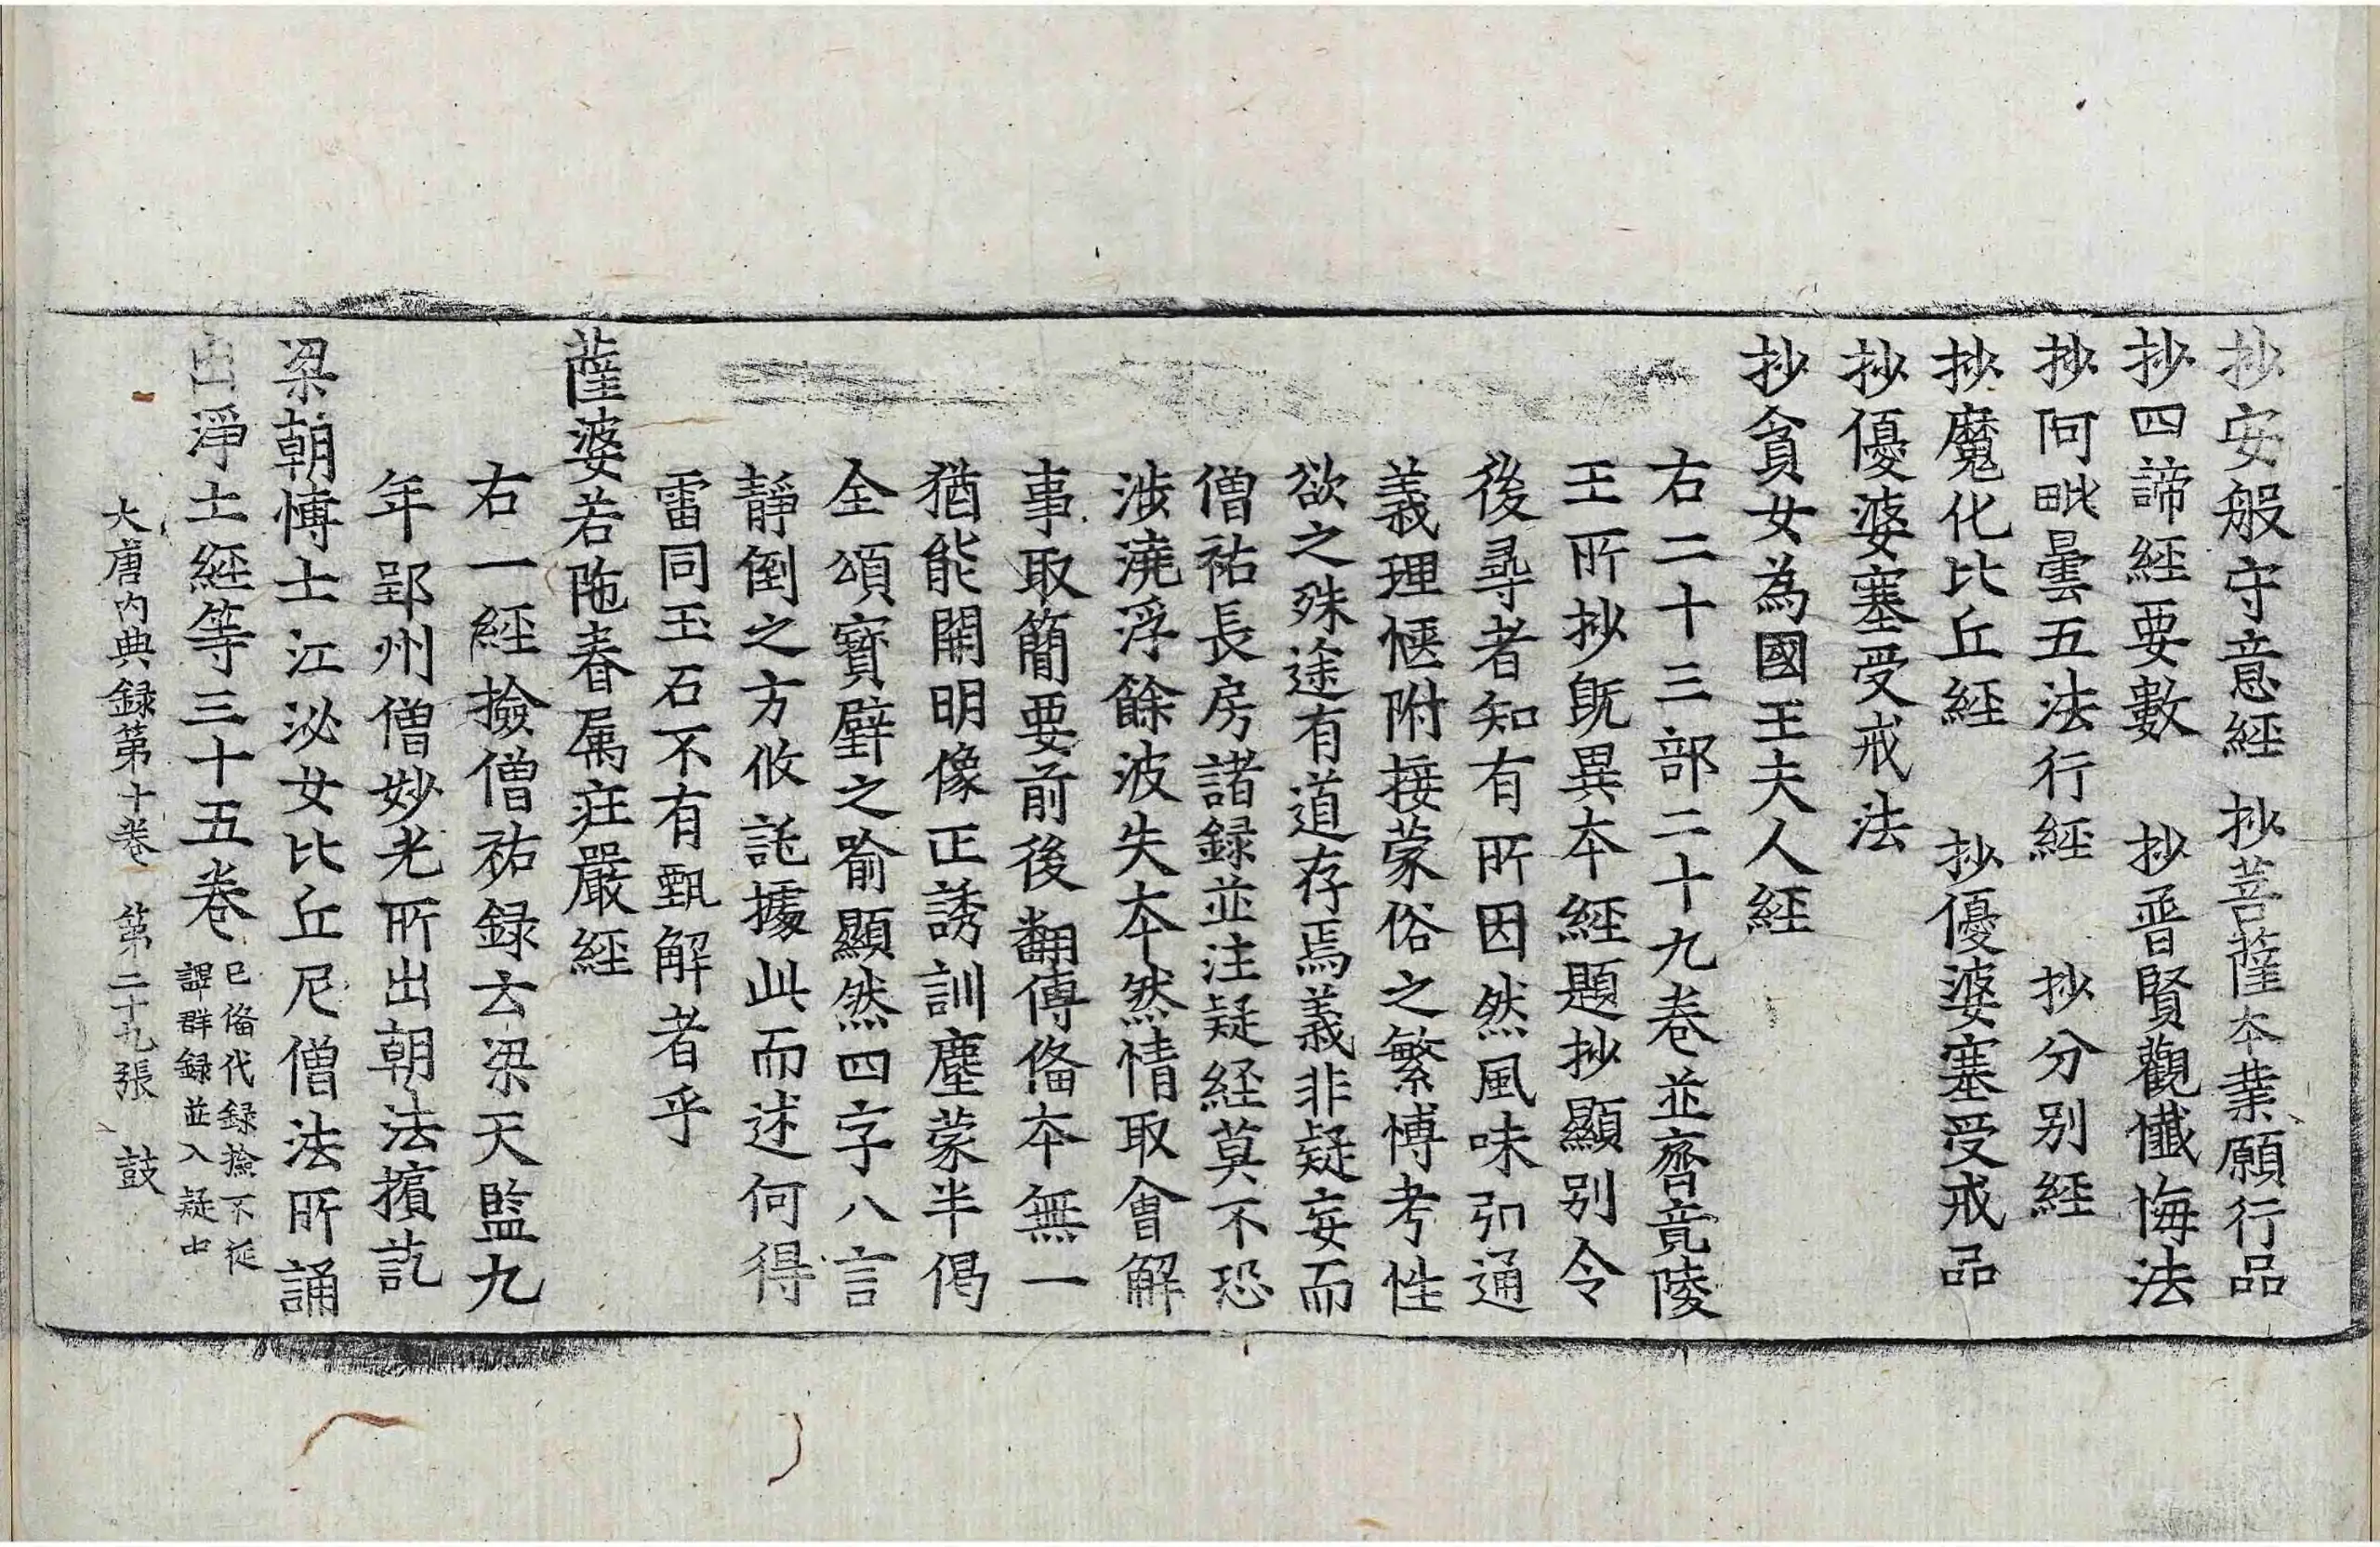 抄安般守意經 抄菩薩本業願行品
抄四諦經要數 抄普賢觀懺悔法
抄阿毗曇五法行經 抄分别經
抄魔化比丘經 抄優婆塞受戒品
抄優婆塞受戒法
抄貪女為國王夫人經
右二十三部二十九卷並齊竟陵
王所抄旣異本經題抄顯别令
後尋者知有所因然風味引通
義理愜附接蒙俗之繁博考性
欲之殊途有道存焉義非疑妄而
僧祐長房諸録並注疑経莫不恐
涉澆浮餘波失本然情取會解
事取簡要前後翻傳俻本無一
猶能開明像正誘訓塵蒙半偈
全頌寶璧之喻顯然四字八言
靜倒之方攸託據此而述何得
雷同玉石不有甄解者乎
薩婆若陁眷属莊嚴經
右一經撿僧祐録云梁天監九
年郢州僧妙光所出朝法擯訖
梁朝博士江泌女比丘尼僧法所誦
出淨土經等三十五卷 已俻代録撿不從
譯群録並入疑中
大唐内典録第十卷 第二十九張 鼓